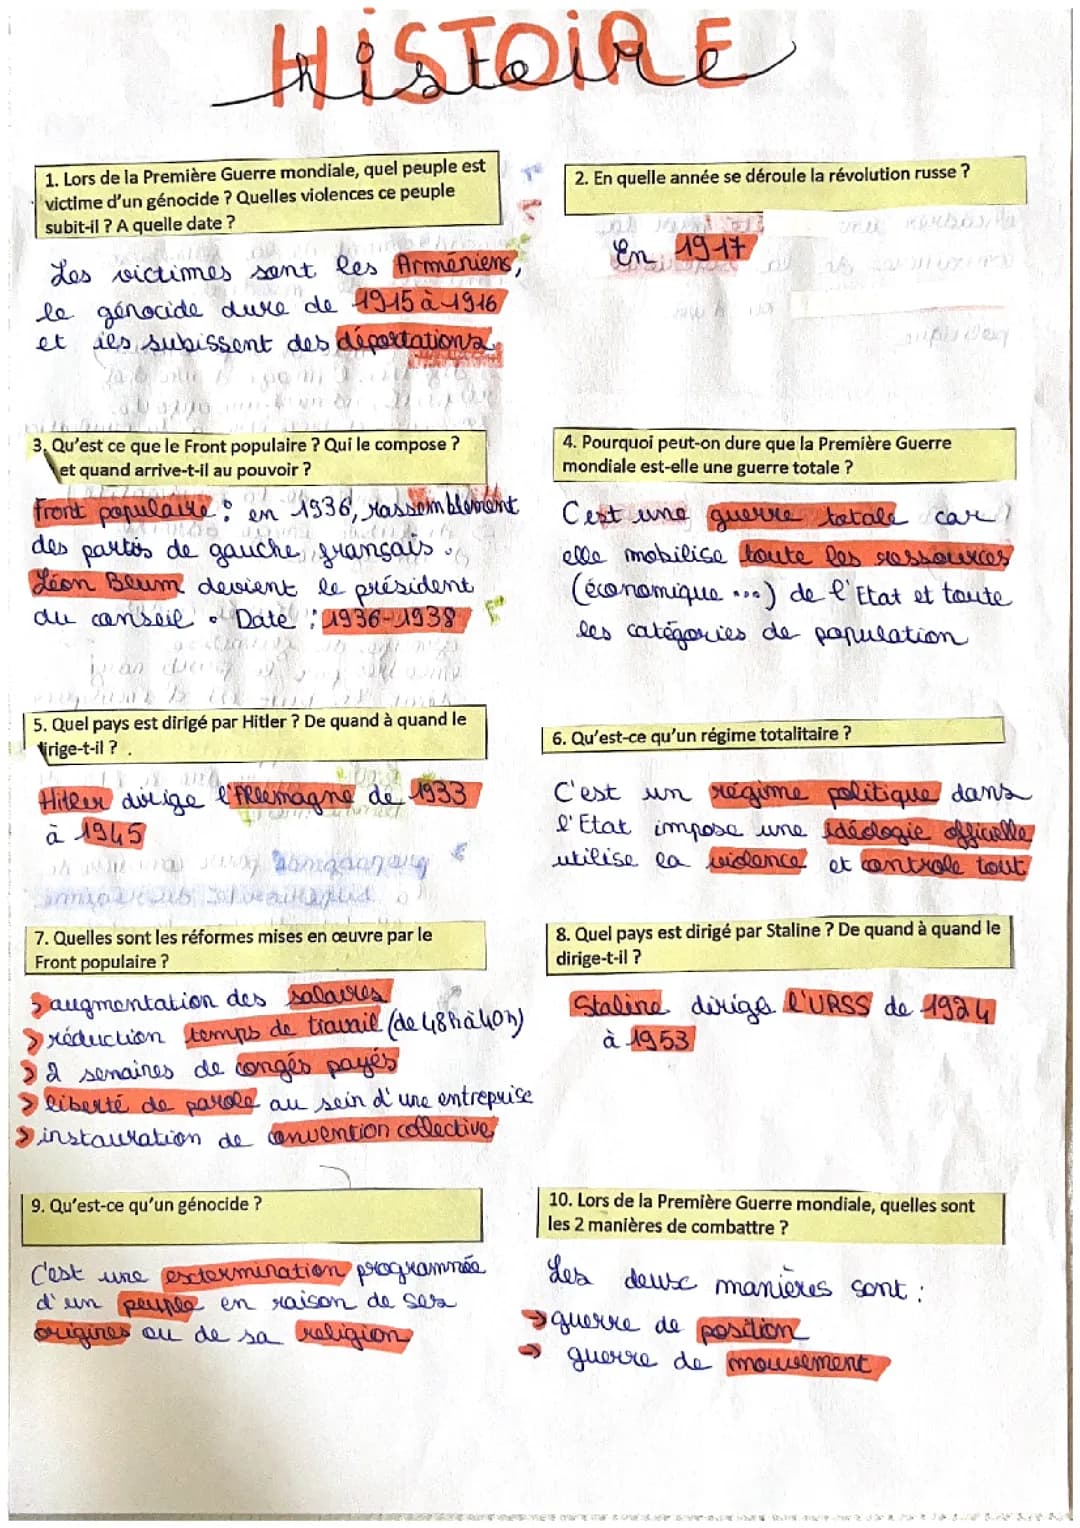 HISTOIRE
histoire
1. Lors de la Première Guerre mondiale, quel peuple est
victime d'un génocide ? Quelles violences ce peuple
subit-il ? A quelle date ?
Les victimes sont les Arméniens,
le génocide dure de 1915 à 1916
et ils subissent des déportations
2. En quelle année se déroule la révolution russe ?
En 1917
3. Qu'est ce que le Front populaire ? Qui le compose ?
et quand arrive-t-il au pouvoir ?
Front populaire : en 1936, rassemblement
des partis de gauche français.
Léon Blum devient le président
du conseil. Date : 1936-1938
4. Pourquoi peut-on dure que la Première Guerre
mondiale est-elle une guerre totale ?
C'est une guerre totale car
elle mobilise toute les ressources
(économique ...) de l'Etat et toute
les catégories de population
5. Quel pays est dirigé par Hitler ? De quand à quand le
irige-t-il ? .
Hitler dirige l'Allemagne de 1933
à 1945
6. Qu'est-ce qu'un régime totalitaire ?
C'est un régime politique dans
l'Etat impose une idéologie officielle
utilise la violence et controle tout
7. Quelles sont les réformes mises en œuvre par le
Front populaire ?
> augmentation des salaires
> réduction temps de travail (de 48h à 40h)
> 2 semaines de congés payés
> liberté de parole au sein d'une entreprise
> instauration de convention collective
8. Quel pays est dirigé par Staline ? De quand à quand le
dirige-t-il ?
Staline dirige l'URSS de 1924
à 1953
9. Qu'est-ce qu'un génocide ?
C'est une extermination programmée
d'un peuple en raison de ses
origines ou de sa religion
10. Lors de la Première Guerre mondiale, quelles sont
les 2 manières de combattre ?
Les deux manières sont :
→ guerre de position
→ guerre de mouvement